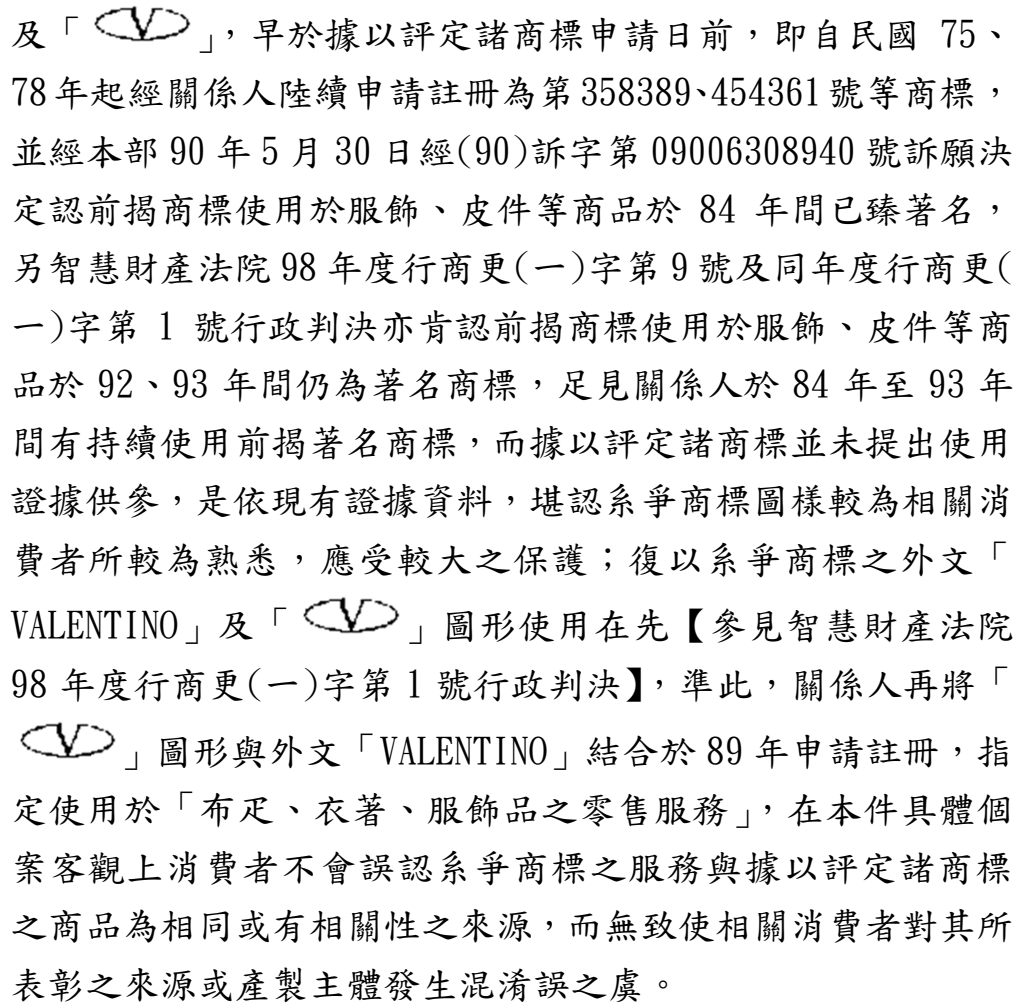 及「 」,早於據以評定諸商標申請日前,即自民國 75、
78 年起經關係人陸續申請註冊為第 358389、454361 號等商標,
並經本部 90 年 5 月 30 日經(90)訴字第 09006308940 號訴願決
定認前揭商標使用於服飾、皮件等商品於 84 年間已臻著名,
另智慧財產法院 98 年度行商更(一)字第 9 號及同年度行商更(
一)字第 1 號行政判決亦肯認前揭商標使用於服飾、皮件等商
品於 92、93 年間仍為著名商標,足見關係人於 84 年至 93 年
間有持續使用前揭著名商標,而據以評定諸商標並未提出使用
證據供參,是依現有證據資料,堪認系爭商標圖樣較為相關消
費者所較為熟悉,應受較大之保護;復以系爭商標之外文「
VALENTINO」及「 V 」圖形使用在先【參見智慧財產法院
98 年度行商更(一)字第 1 號行政判決】,準此,關係人再將「
V 」圖形與外文「VALENTINO」結合於 89 年申請註冊,指
定使用於「布疋、衣著、服飾品之零售服務」,在本件具體個
案客觀上消費者不會誤認系爭商標之服務與據以評定諸商標
之商品為相同或有相關性之來源,而無致使相關消費者對其所
表彰之來源或產製主體發生混淆誤之虞。